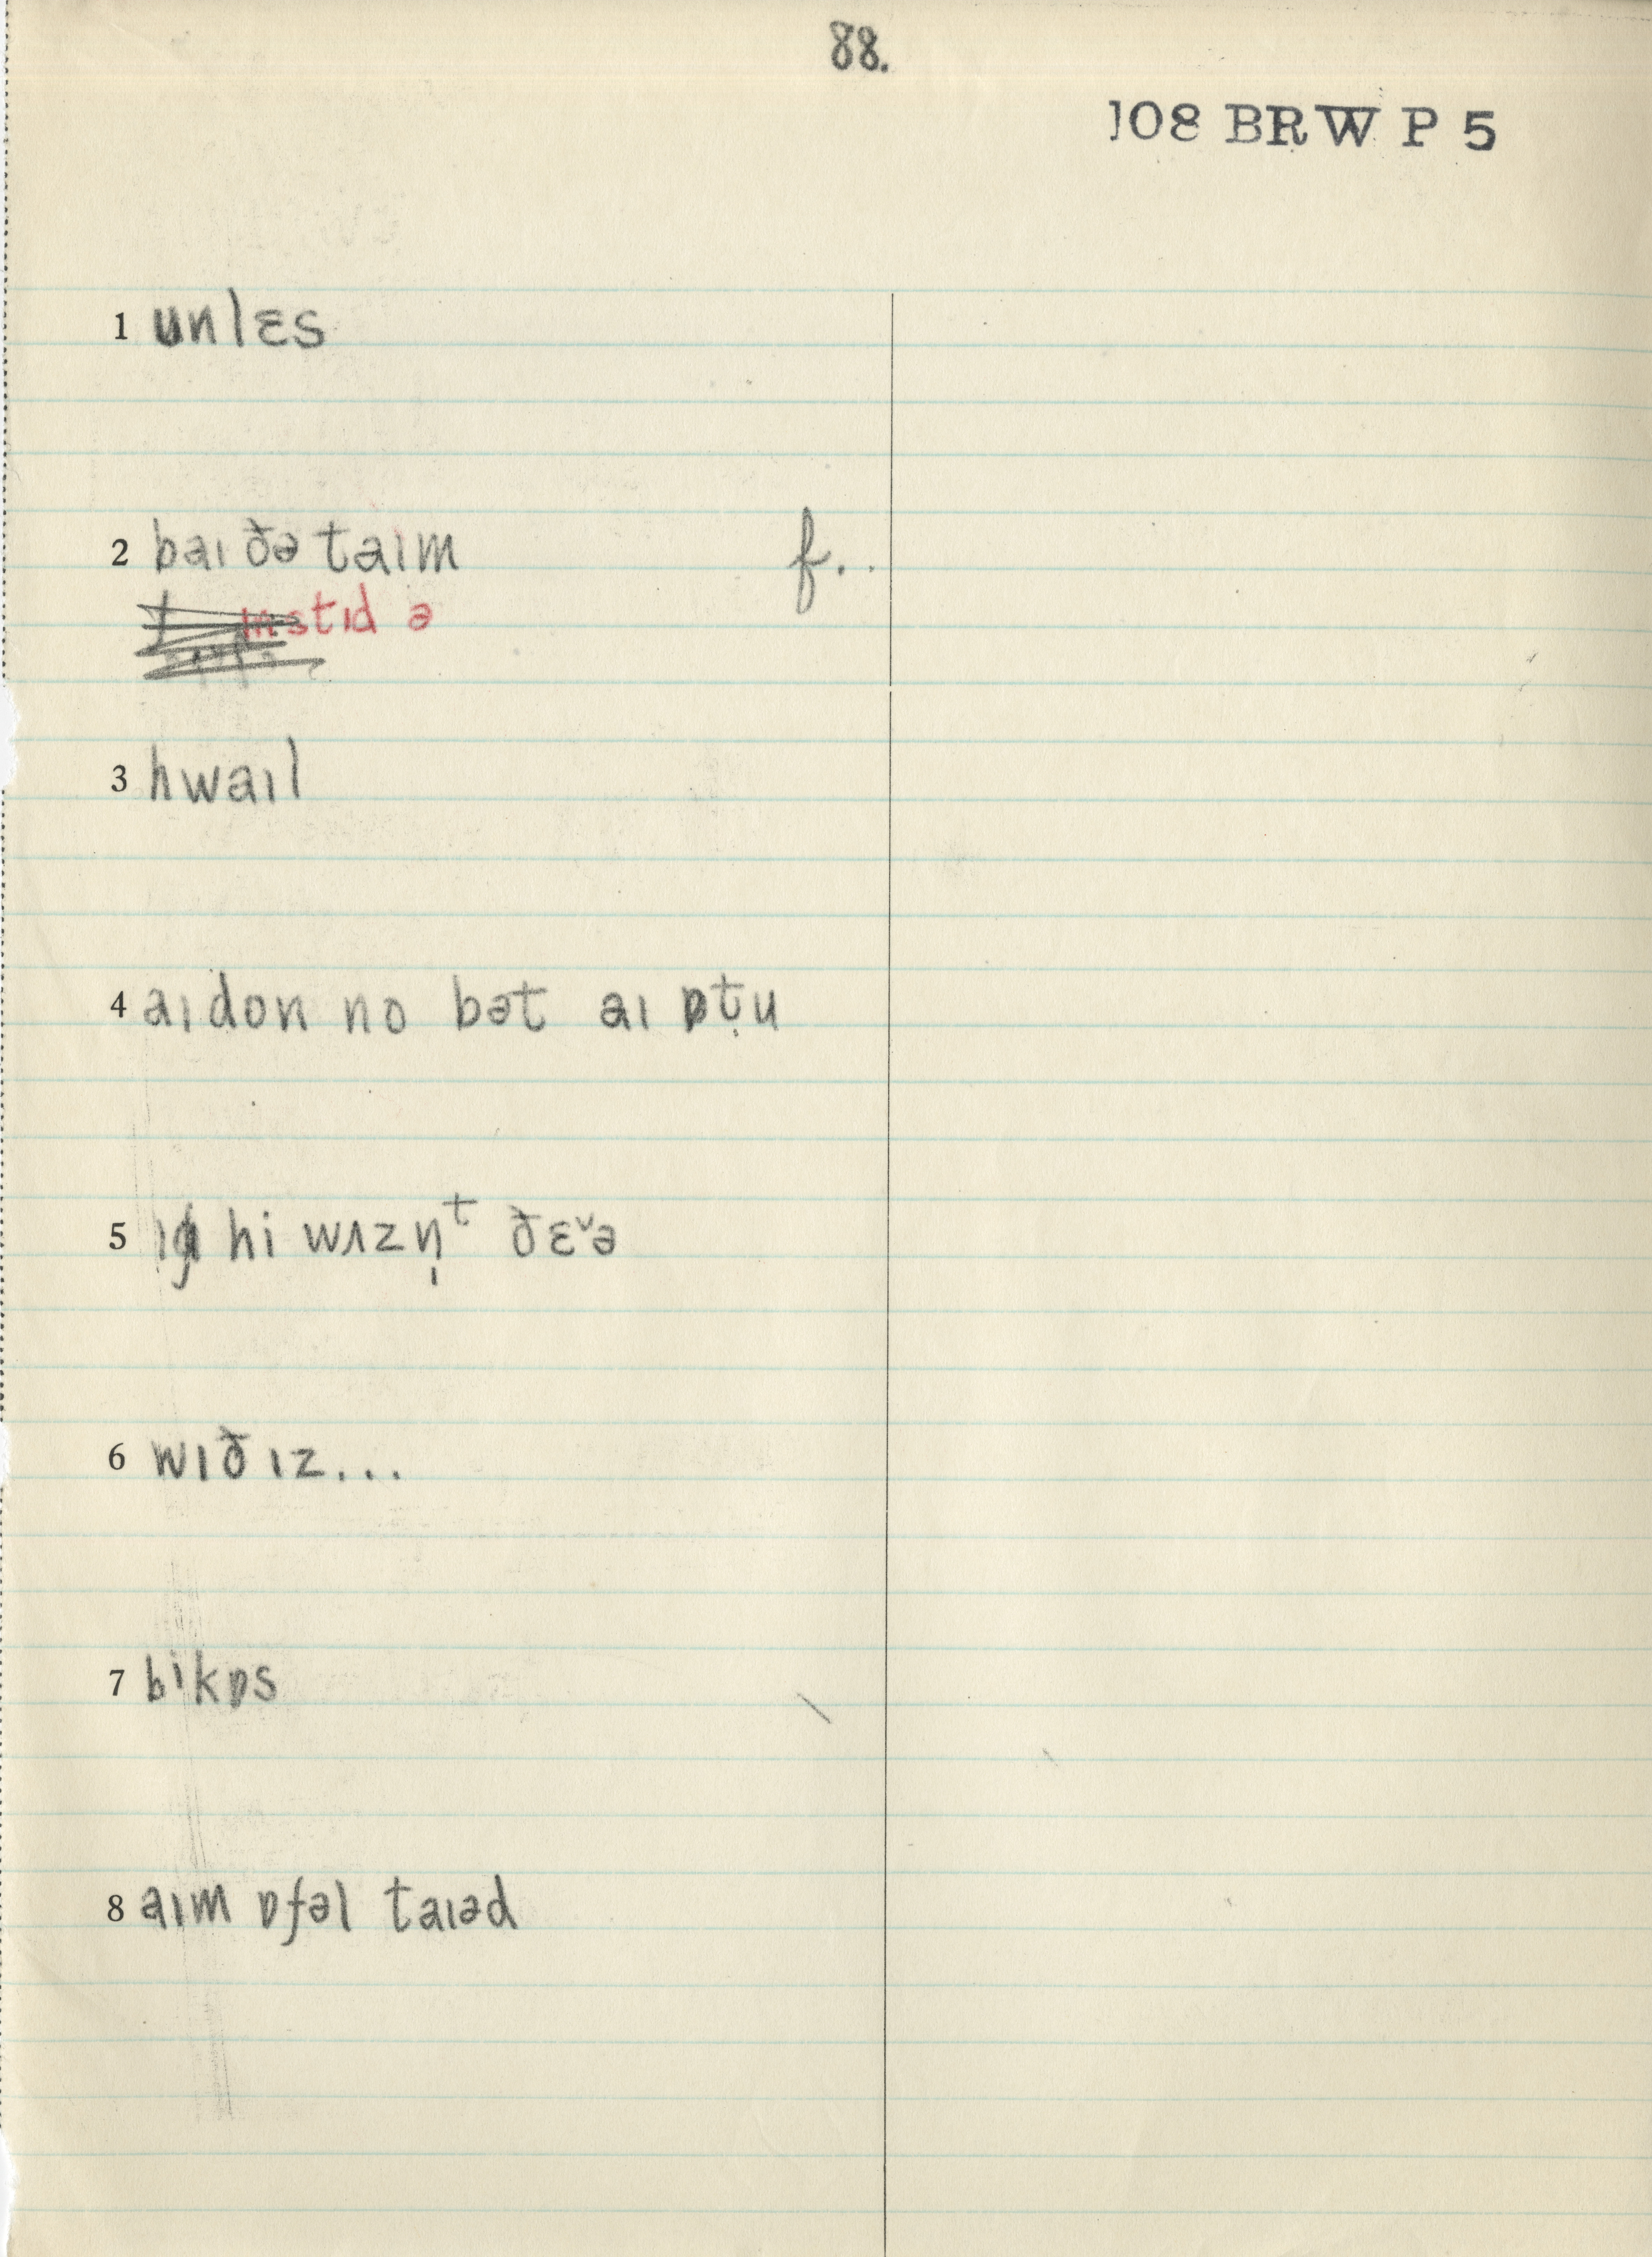 88.
108 BRW P 5
1 unlɛs
2 baɪ ðə taɪm f..
ɪnstɪd ə
3 hwaɪl
4 aɪ don no bət aɪ ɒt̬u
5 hi wʌzn̩ᵗ ðɛˇə
6 wɪð ɪz...
7 bikɒs
8 aɪm ɒfəl taɪəd